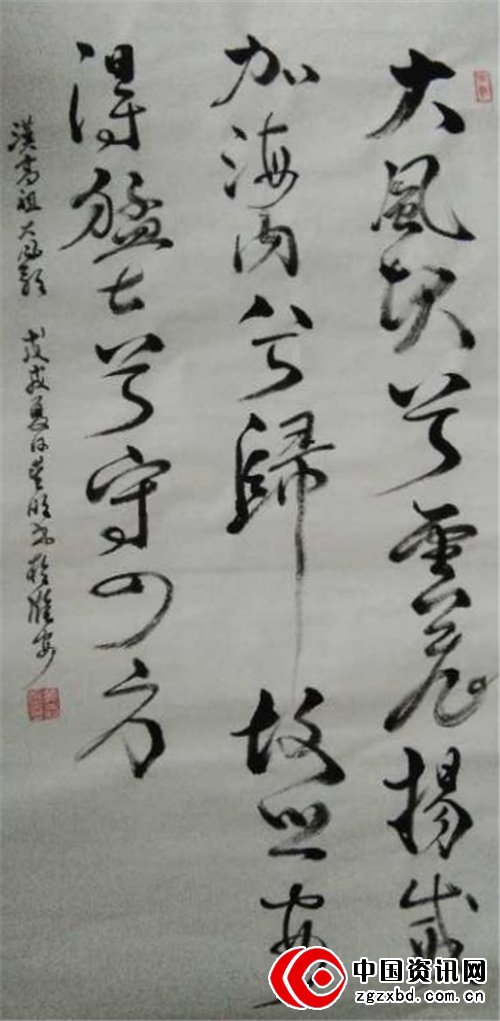 大風起兮雲飛揚威
加海内兮歸故鄉安
得猛士兮守四方
漢高祖大風歌 戊戌夏 書於
中国资讯网
zgzxbd.com.cn